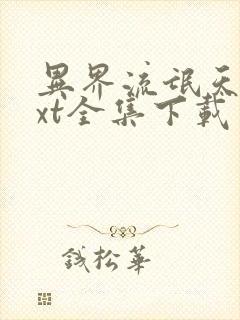 異界流氓天
xt全集下載
錢松華